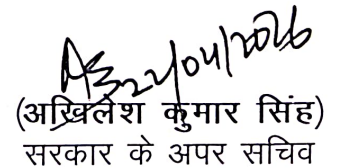 22/04/2026
(अखिलेश कुमार सिंह)
सरकार के अपर सचिव